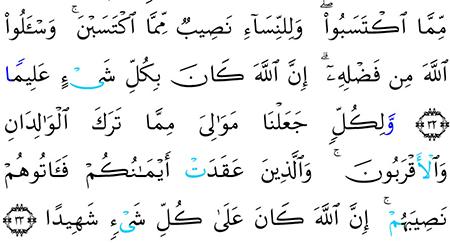 مِّمَّا ٱكْتَسَبُوا۟ ۖ وَلِلنِّسَآءِ نَصِيبٌ مِّمَّا ٱكْتَسَبْنَ ۚ وَسْـَٔلُوا۟
ٱللَّهَ مِن فَضْلِهِۦٓ ۗ إِنَّ ٱللَّهَ كَانَ بِكُلِّ شَىْءٍ عَلِيمًا
﴿٣٢﴾ وَلِكُلٍّ جَعَلْنَا مَوَٰلِىَ مِمَّا تَرَكَ ٱلْوَٰلِدَانِ
وَٱلْأَقْرَبُونَ ۚ وَٱلَّذِينَ عَقَدَتْ أَيْمَـٰنُكُمْ فَـَٔاتُوهُمْ
نَصِيبَهُمْ ۚ إِنَّ ٱللَّهَ كَانَ عَلَىٰ كُلِّ شَىْءٍ شَهِيدًا ﴿٣٣﴾